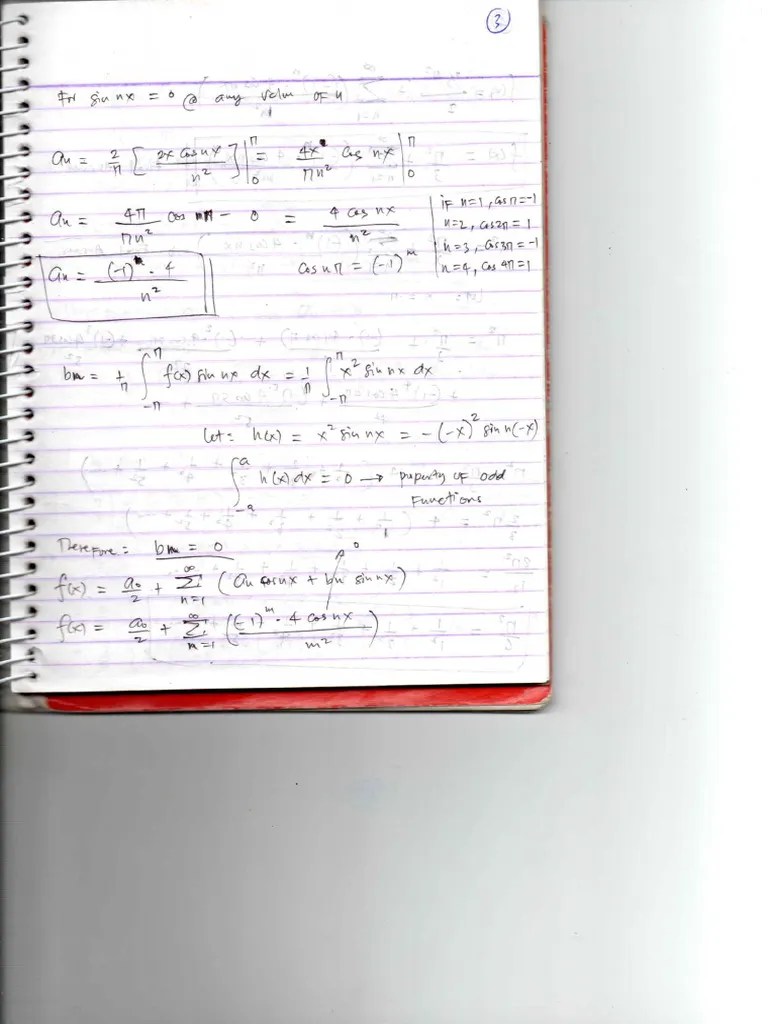 3
For sin nx = 0 @ any value of n
an = 2/π [ 2x cos nx / n² ] |₀^π = 4x / πn² cos nx |₀^π
an = 4π / πn² cos nπ - 0 = 4 cos nx / n²
if n=1, cos π = -1
n=2, cos 2π = 1
n=3, cos 3π = -1
n=4, cos 4π = 1
an = (-1)ⁿ · 4 / n²
cos nπ = (-1)ᵐ
bn = 1/π ∫_{-π}^{π} f(x) sin nx dx = 1/π ∫_{-π}^{π} x² sin nx dx
Let: h(x) = x² sin nx = -(-x)² sin n(-x)
∫_{-a}^{a} h(x) dx = 0 → property of odd
Functions
Therefore: bn = 0
f(x) = a₀/2 + Σ_{n=1}^{∞} (an cos nx + bn sin nx) 0
f(x) = a₀/2 + Σ_{m=1}^{∞} ( (-1)ᵐ · 4 cos nx / m² )